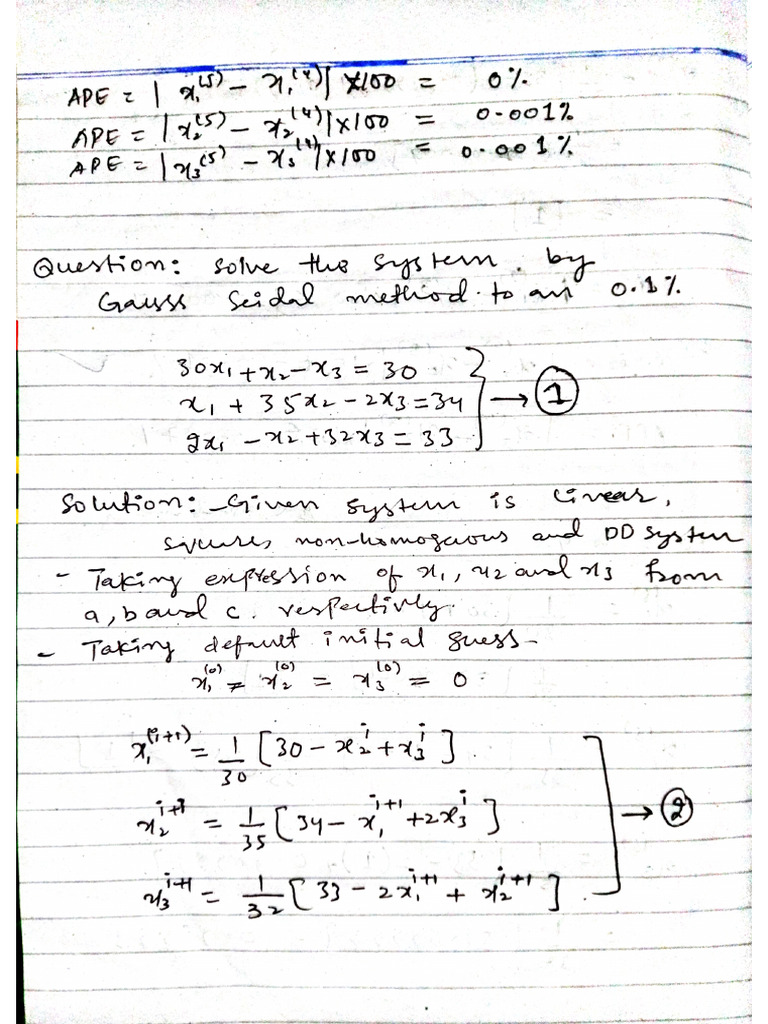 APE = | x₁⁽⁵⁾ - x₁⁽⁴⁾ | ×100 = 0%
APE = | x₂⁽⁵⁾ - x₂⁽⁴⁾ | ×100 = 0.001%
APE = | x₃⁽⁵⁾ - x₃⁽⁴⁾ | ×100 = 0.001%
Question: solve the system by
Gauss Seidal method to an 0.1%
30x₁ + x₂ - x₃ = 30
x₁ + 35x₂ - 2x₃ = 34 → ①
2x₁ - x₂ + 32x₃ = 33
Solution: - Given system is linear,
non-homogenous and DD system
- Taking expression of x₁, x₂ and x₃ from
a, b and c. respectivly.
- Taking default initial guess -
x₁⁽⁰⁾ = x₂⁽⁰⁾ = x₃⁽⁰⁾ = 0.
x₁⁽ⁱ⁺¹⁾ = 1/30 [30 - x₂ⁱ + x₃ⁱ]
x₂ⁱ⁺¹ = 1/35 [34 - x₁ⁱ⁺¹ + 2x₃ⁱ] → ②
x₃ⁱ⁺¹ = 1/32 [33 - 2x₁ⁱ⁺¹ + x₂ⁱ⁺¹]